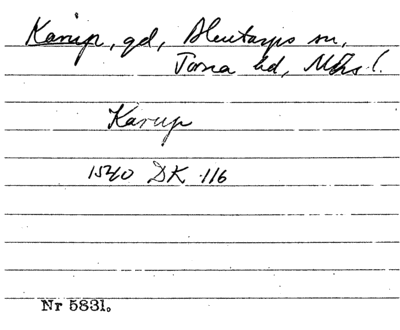 Karup, gd, Blentarps sn,
Torna hd, Mhs l.
Karup
1540 DK 116
Nr 5831.